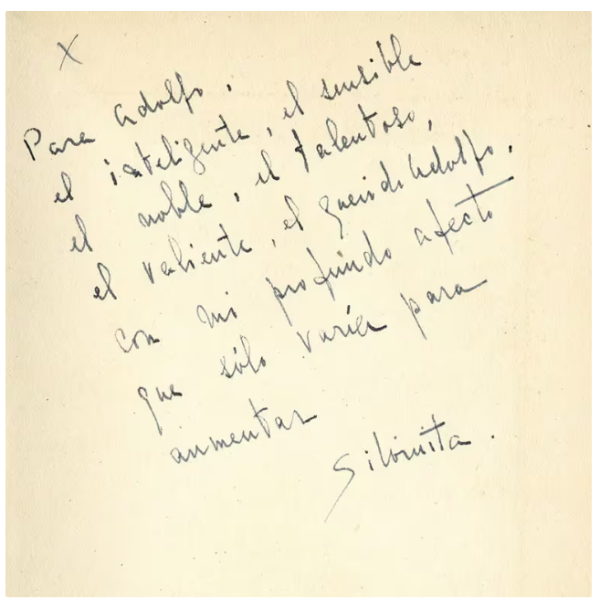 X
Para Adolfo,
el inteligente, el sensible
el noble, el talentoso,
el valiente, el querido Adolfo,
con mi profundo afecto
que sólo varía para
aumentar
Silvinita.